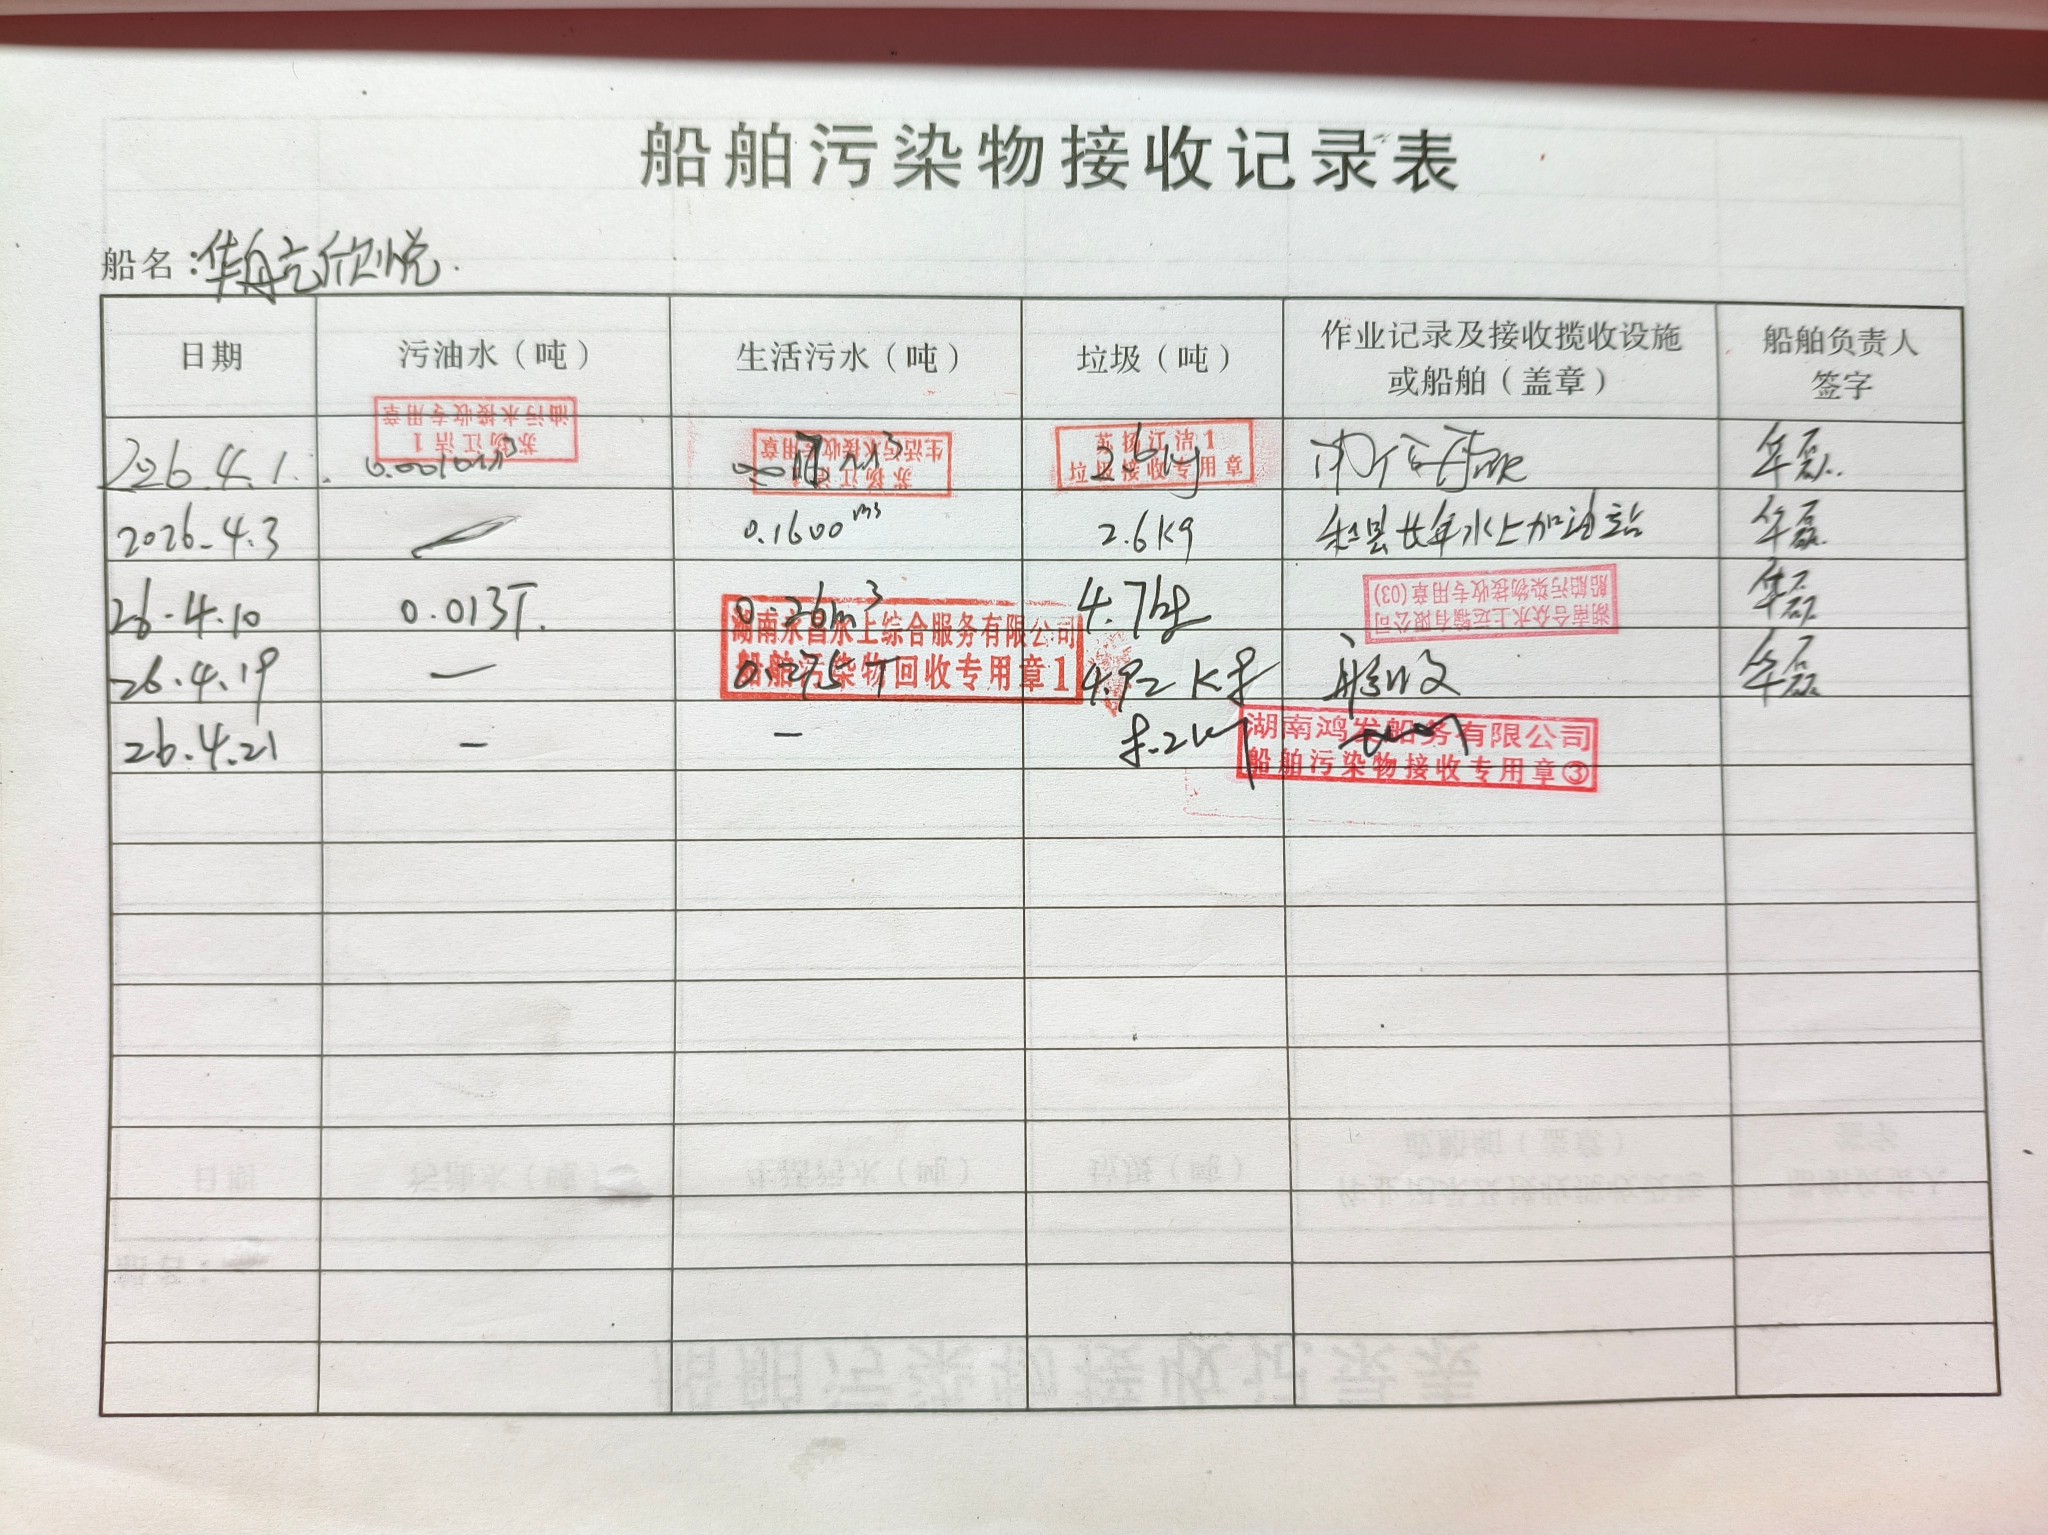 船舶污染物接收记录表
船名：华航亮欣悦
日期 污油水（吨） 生活污水（吨） 垃圾（吨） 作业记录及接收揽收设施或船舶（盖章） 船舶负责人签字
2026.4.1 0.0010m³ 2.6kg 华磊
苏扬江洁1
油污水接收专用章
苏扬江洁
生活污水接收专用章
苏扬江洁1
垃圾接收专用章
2026.4.3 0.1600m³ 2.6kg 和县长年水上加油站 华磊
26.4.10 0.013T. 0.26m³ 4.7kg 华磊
湖南合众水上运输有限公司
船舶污染物接收专用章(03)
26.4.19 — 0.275T 4.92kg 华磊
湖南永昌水上综合服务有限公司
船舶污染物回收专用章1
26.4.21 — —
湖南鸿发船务有限公司
船舶污染物接收专用章③